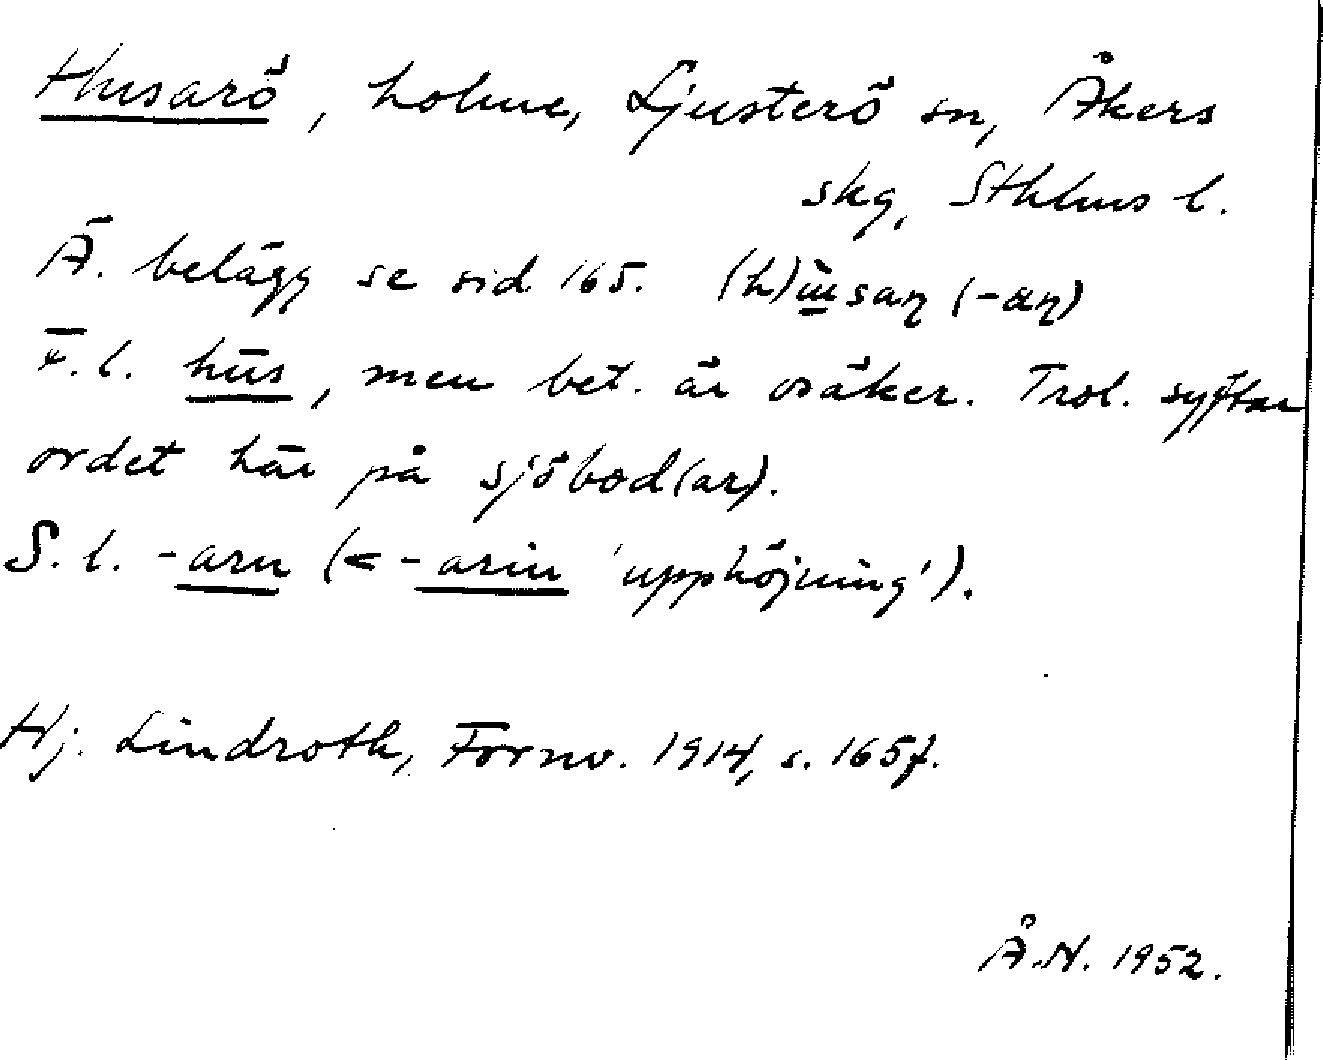 Husarö, holme, Ljusterö sn, Åkers
skg, Sthlms l.
Ä. belägg se sid 165. (h)ùsaη (-αη)
F.l. hūs, men bet. är osäker. Trol. syftar
ordet här på sjöbod(ar).
S.l. -arn (< -arin 'upphöjning').
Hj. Lindroth, Fornv. 1914, s. 165f.
Å.N. 1952.